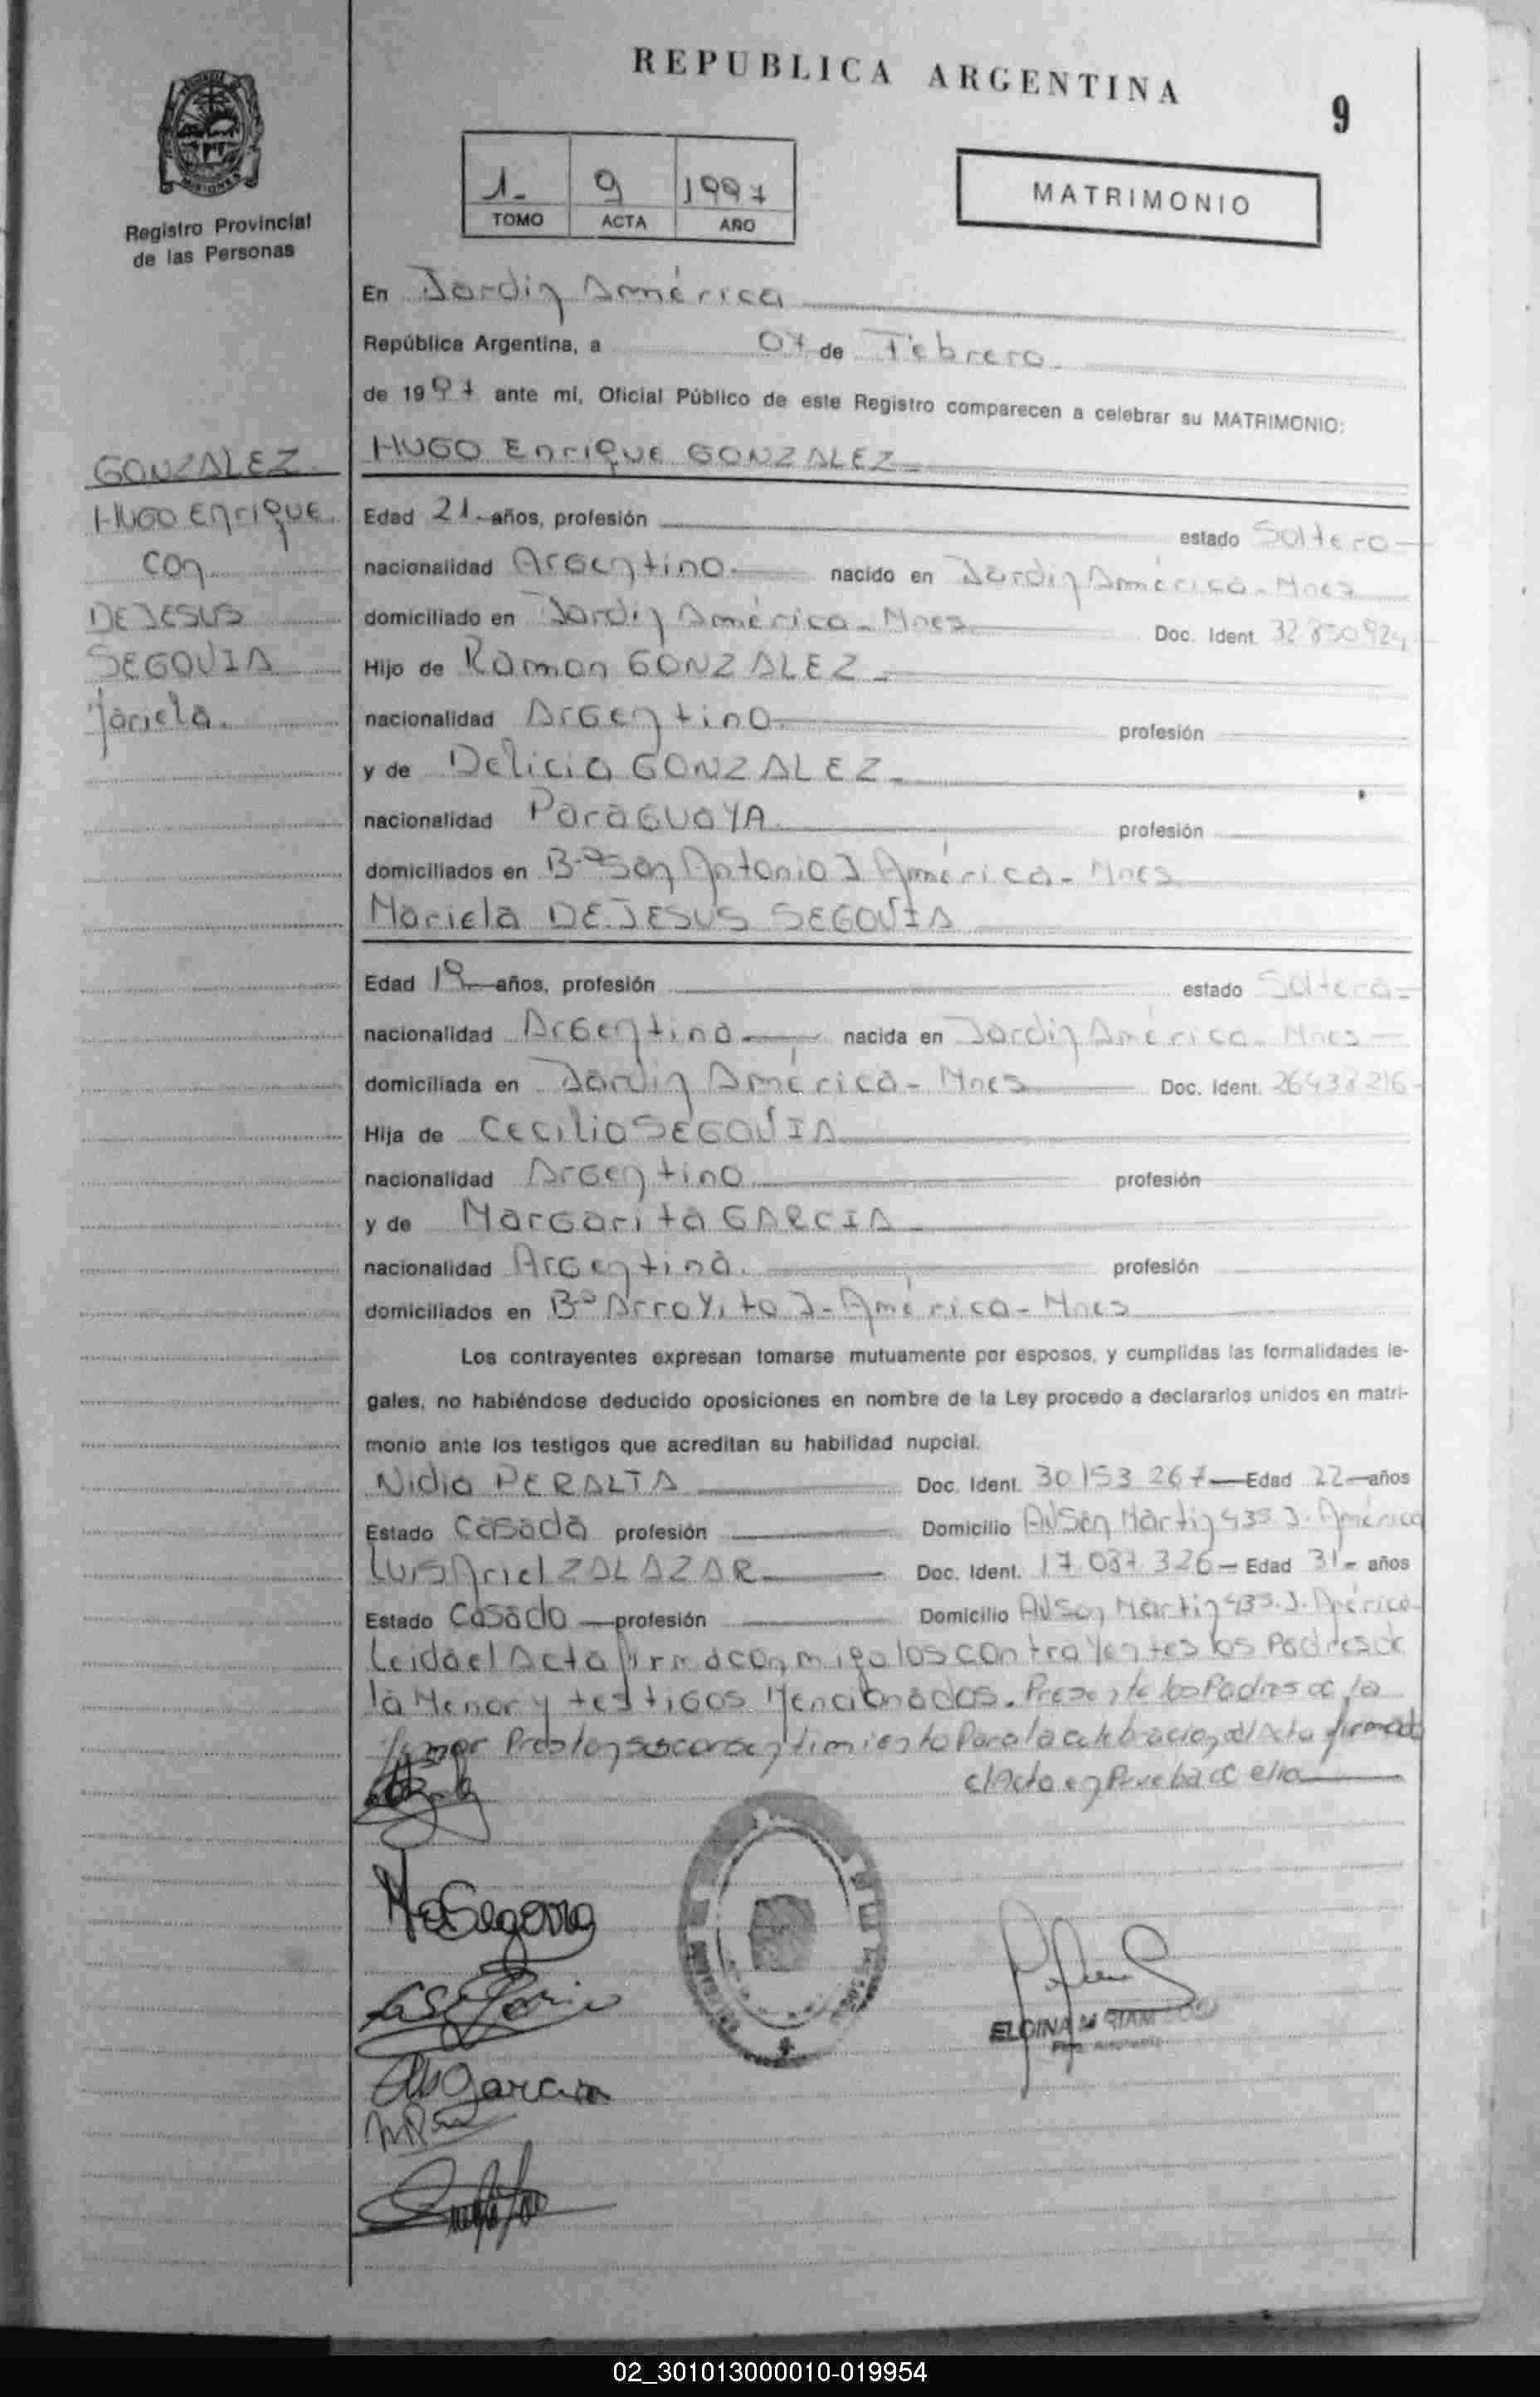 REPUBLICA ARGENTINA
9
MISIONES
Registro Provincial
de las Personas
1- 9 1997
TOMO ACTA AÑO
MATRIMONIO
En Jardin América
República Argentina, a 07 de Febrero
de 1997 ante mi, Oficial Público de este Registro comparecen a celebrar su MATRIMONIO:
HUGO Enrique GONZALEZ
GONZALEZ
HUGO Enrique
con
DE JESUS
SEGOVIA
Mariela.
Edad 21 años, profesión estado Soltero
nacionalidad Argentino nacido en Jardin América - Mnes
domiciliado en Jardin América - Mnes Doc. Ident. 32 850924
Hijo de Ramon GONZALEZ
nacionalidad Argentino profesión
y de Delicia GONZALEZ
nacionalidad Paraguaya profesión
domiciliados en Bº San Antonio J América - Mnes
Mariela DE JESUS SEGOVIA
Edad 19 años, profesión estado Soltera
nacionalidad Argentina nacida en Jardin América - Mnes
domiciliada en Jardin América - Mnes Doc. Ident. 26438216
Hija de Cecilio SEGOVIA
nacionalidad Argentino profesión
y de Margarita GARCIA
nacionalidad Argentina. profesión
domiciliados en Bº Arroyito J - América - Mnes
Los contrayentes expresan tomarse mutuamente por esposos, y cumplidas las formalidades le-
gales, no habiéndose deducido oposiciones en nombre de la Ley procedo a declararlos unidos en matri-
monio ante los testigos que acreditan su habilidad nupcial.
Nidia PERALTA Doc. Ident. 30 153 267 Edad 22 años
Estado Casada profesión Domicilio Av San Martin 935 J. América
Luis Ariel ZALAZAR Doc. Ident. 17.087.326 - Edad 31 - años
Estado Casado profesión Domicilio Av San Martin 935. J. América
Leida el Acta firma conmigo los contrayentes los Padres de
la Menor y testigos Mencionados. Presente los Padres de la
Menor Prestan sus consentimiento Para la celebracion del Acta firmado
el Acto en Prueba de ella
Segovia
Garcia
ELDINA
02_301013000010-019954